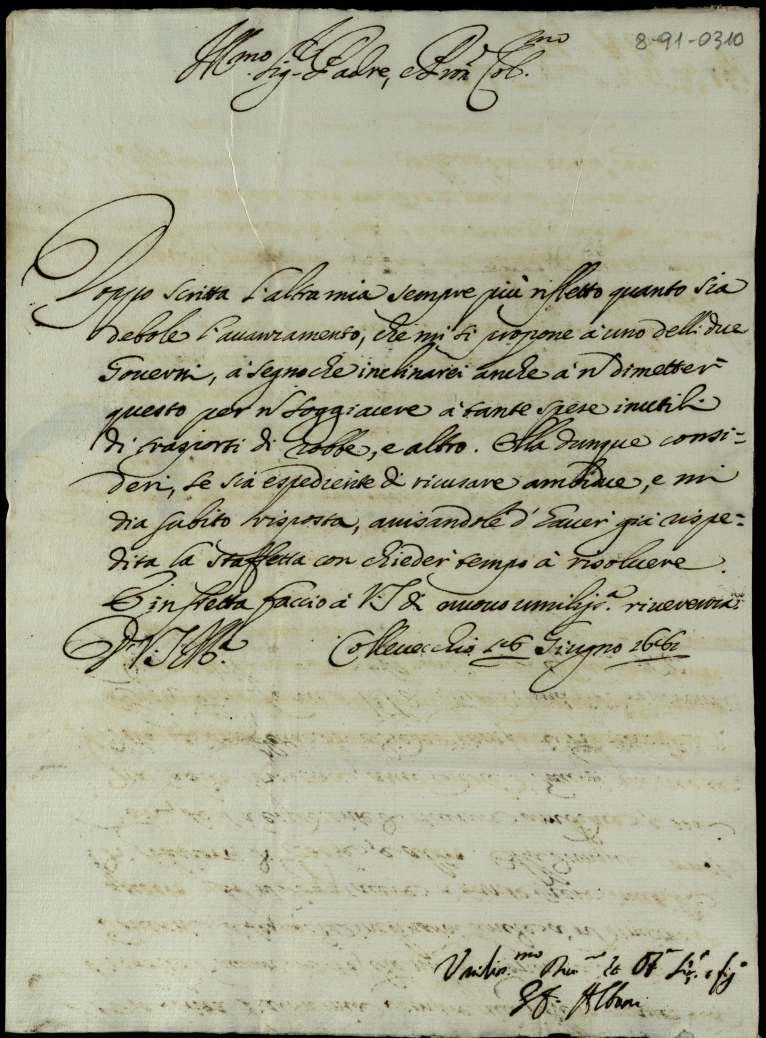 8-91-0310
Ill.mo Sig.r Padre, e Pron Col.mo
Doppo scritta l'altra mia sempre più rifletto quanto sia
debole l'auanzamento, che mi si propone à uno delli due
Gouerni, à segno che inclinarei anche à n dimetter
questo per n soggiacere à tante spese inutili
di trasporti di robbe, e altro. Ella dunque consi=
deri, se sia espediente di ricusare ambidue, e mi
dia subito risposta, auisandole d'hauer già rispe=
dita la staffetta con chieder tempo à risoluere.
E in fretta faccio à V.S di nuouo umiliss.a riuerenza.
D V.S Ill.a Collevecchio 16 Giugno 1661
Umilis.mo Deu et Ob Ser.e e fig.o
Albani